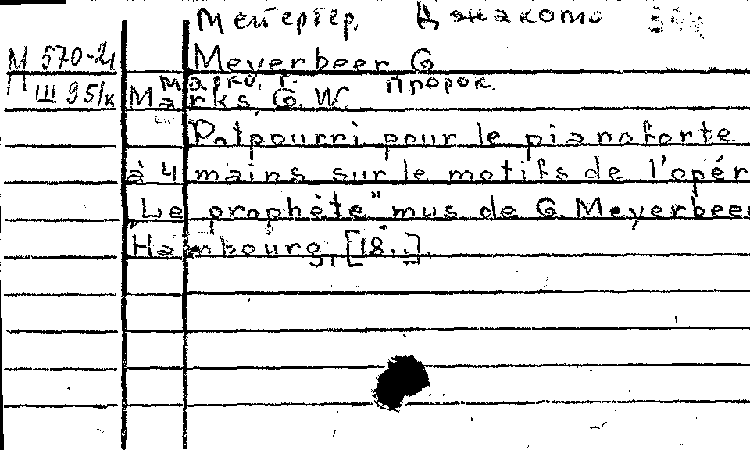 Мейербер, Джакомо
М 570-21 Meyerbeer G
Марко. Г. Пророк.
Ш 951к Marks, G. W.
Potpourri pour le pianoforte
à 4 mains sur le motifs de l'opér
„Le prophète" mus de G. Meyerbeer
Hambourg, [18..].